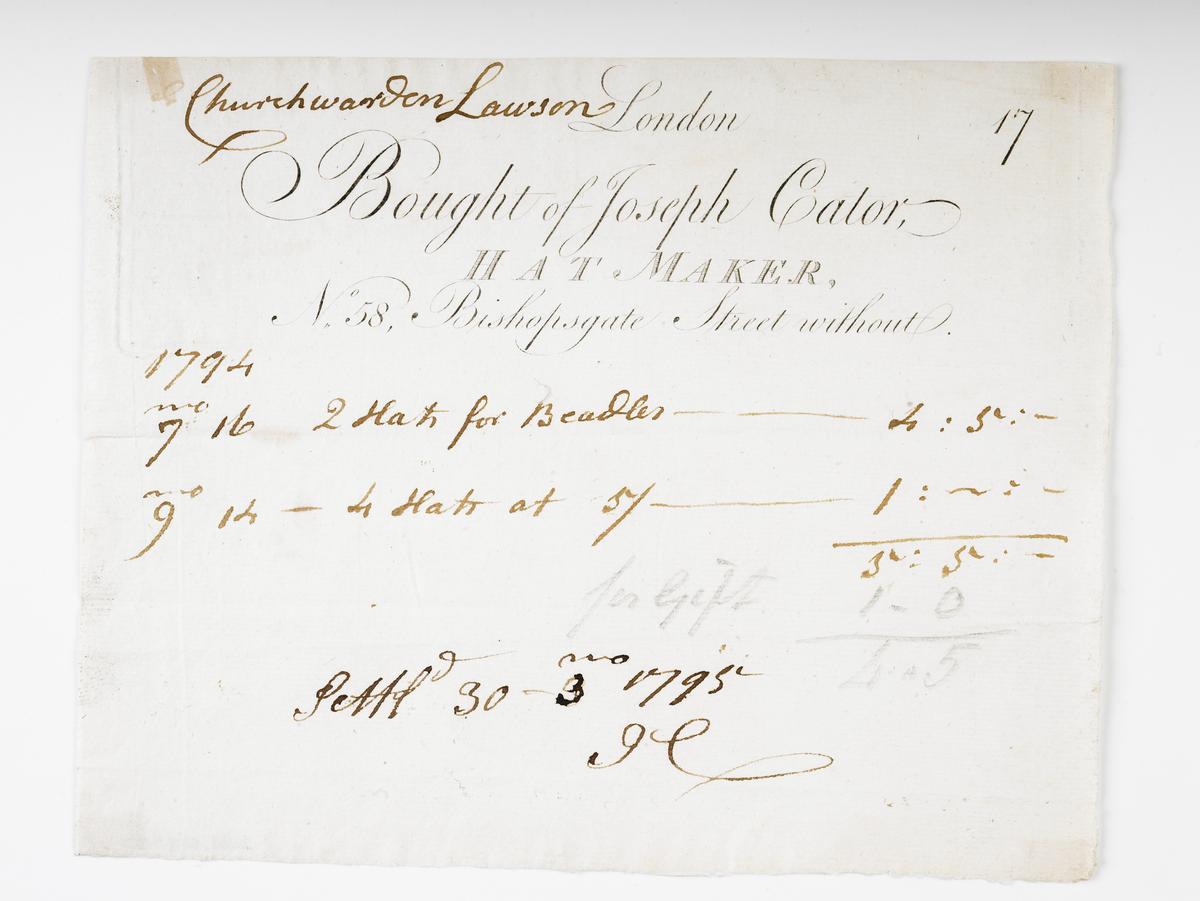 Churchwarden Lawson London 17
Bought of Joseph Cator,
HAT MAKER,
No. 58, Bishopsgate Street without.
1794
7mo 16 2 Hats for Beadles — — 4 : 5 : -
9mo 14 — 4 Hats at 5/ — 1 : ~ : -
5 : 5 : -
for Gift 1 - 0
4 . 5
Settld 30 - 3mo 1795
JC